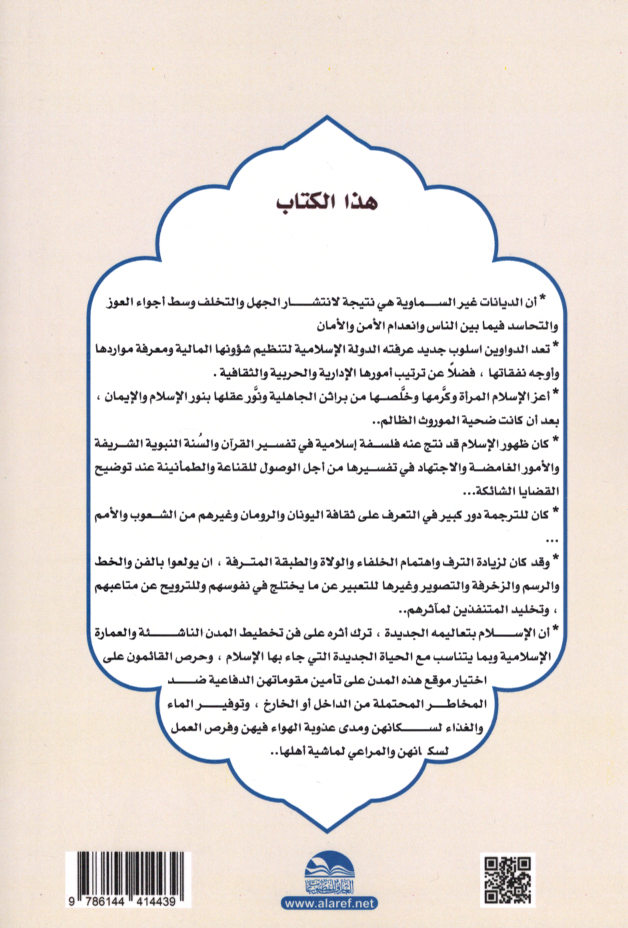 هذا الكتاب
* أن الديانات غير السماوية هي نتيجة لانتشار الجهل والتخلف وسط أجواء العوز
والتحاسد فيما بين الناس وانعدام الأمن والأمان
* تعد الدواوين اسلوب جديد عرفته الدولة الإسلامية لتنظيم شؤونها المالية ومعرفة مواردها
وأوجه نفقاتها ، فضلاً عن ترتيب أمورها الإدارية والحربية والثقافية .
* أعز الإسلام المرأة وكرَّمها وخلَّصها من براثن الجاهلية ونَّور عقلها بنور الإسلام والإيمان ،
بعد أن كانت ضحية الموروث الظالم..
* كان ظهور الإسلام قد نتج عنه فلسفة إسلامية في تفسير القرآن والسُنة النبوية الشريفة
والأمور الغامضة والاجتهاد في تفسيرها من أجل الوصول للقناعة والطمأنينة عند توضيح
القضايا الشائكة...
* كان للترجمة دور كبير في التعرف على ثقافة اليونان والرومان وغيرهم من الشعوب والأمم
...
* وقد كان لزيادة الترف واهتمام الخلفاء والولاة والطبقة المترفة ، ان يولعوا بالفن والخط
والرسم والزخرفة والتصوير وغيرها للتعبير عن ما يختلج في نفوسهم وللترويح عن متاعبهم
، وتخليد المتنفذين لمآثرهم..
* أن الإسلام بتعاليمه الجديدة ، ترك أثره على فن تخطيط المدن الناشئة والعمارة
الإسلامية وبما يتناسب مع الحياة الجديدة التي جاء بها الإسلام ، وحرص القائمون على
اختيار موقع هذه المدن على تأمين مقوماتهن الدفاعية ضد
المخاطر المحتملة من الداخل أو الخارخ ، وتوفير الماء
والغذاء لسكانهن ومدى عذوبة الهواء فيهن وفرص العمل
لسكانهن والمراعي لماشية أهلها..
9 786144 414439
www.alaref.net